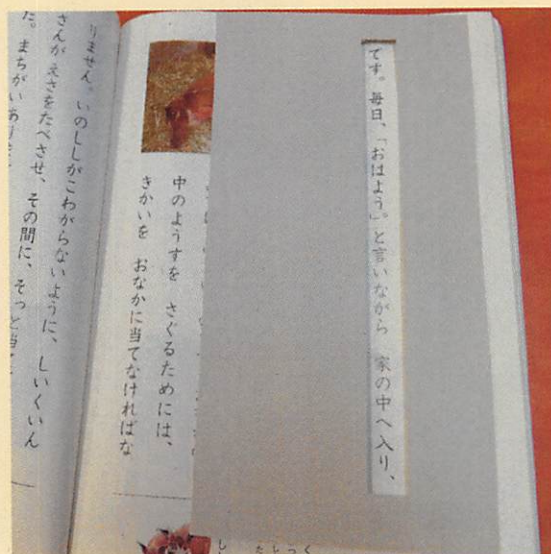 です。毎日、「おはよう。」と言いながら 家の中へ入り、
中のようすを さぐるためには、
きかいを おなかに当てなければな
りません。いのししがこわがらないように、しいくいん
さんがえさをたべさせ、その間に、そっと当
た。まちがいあり